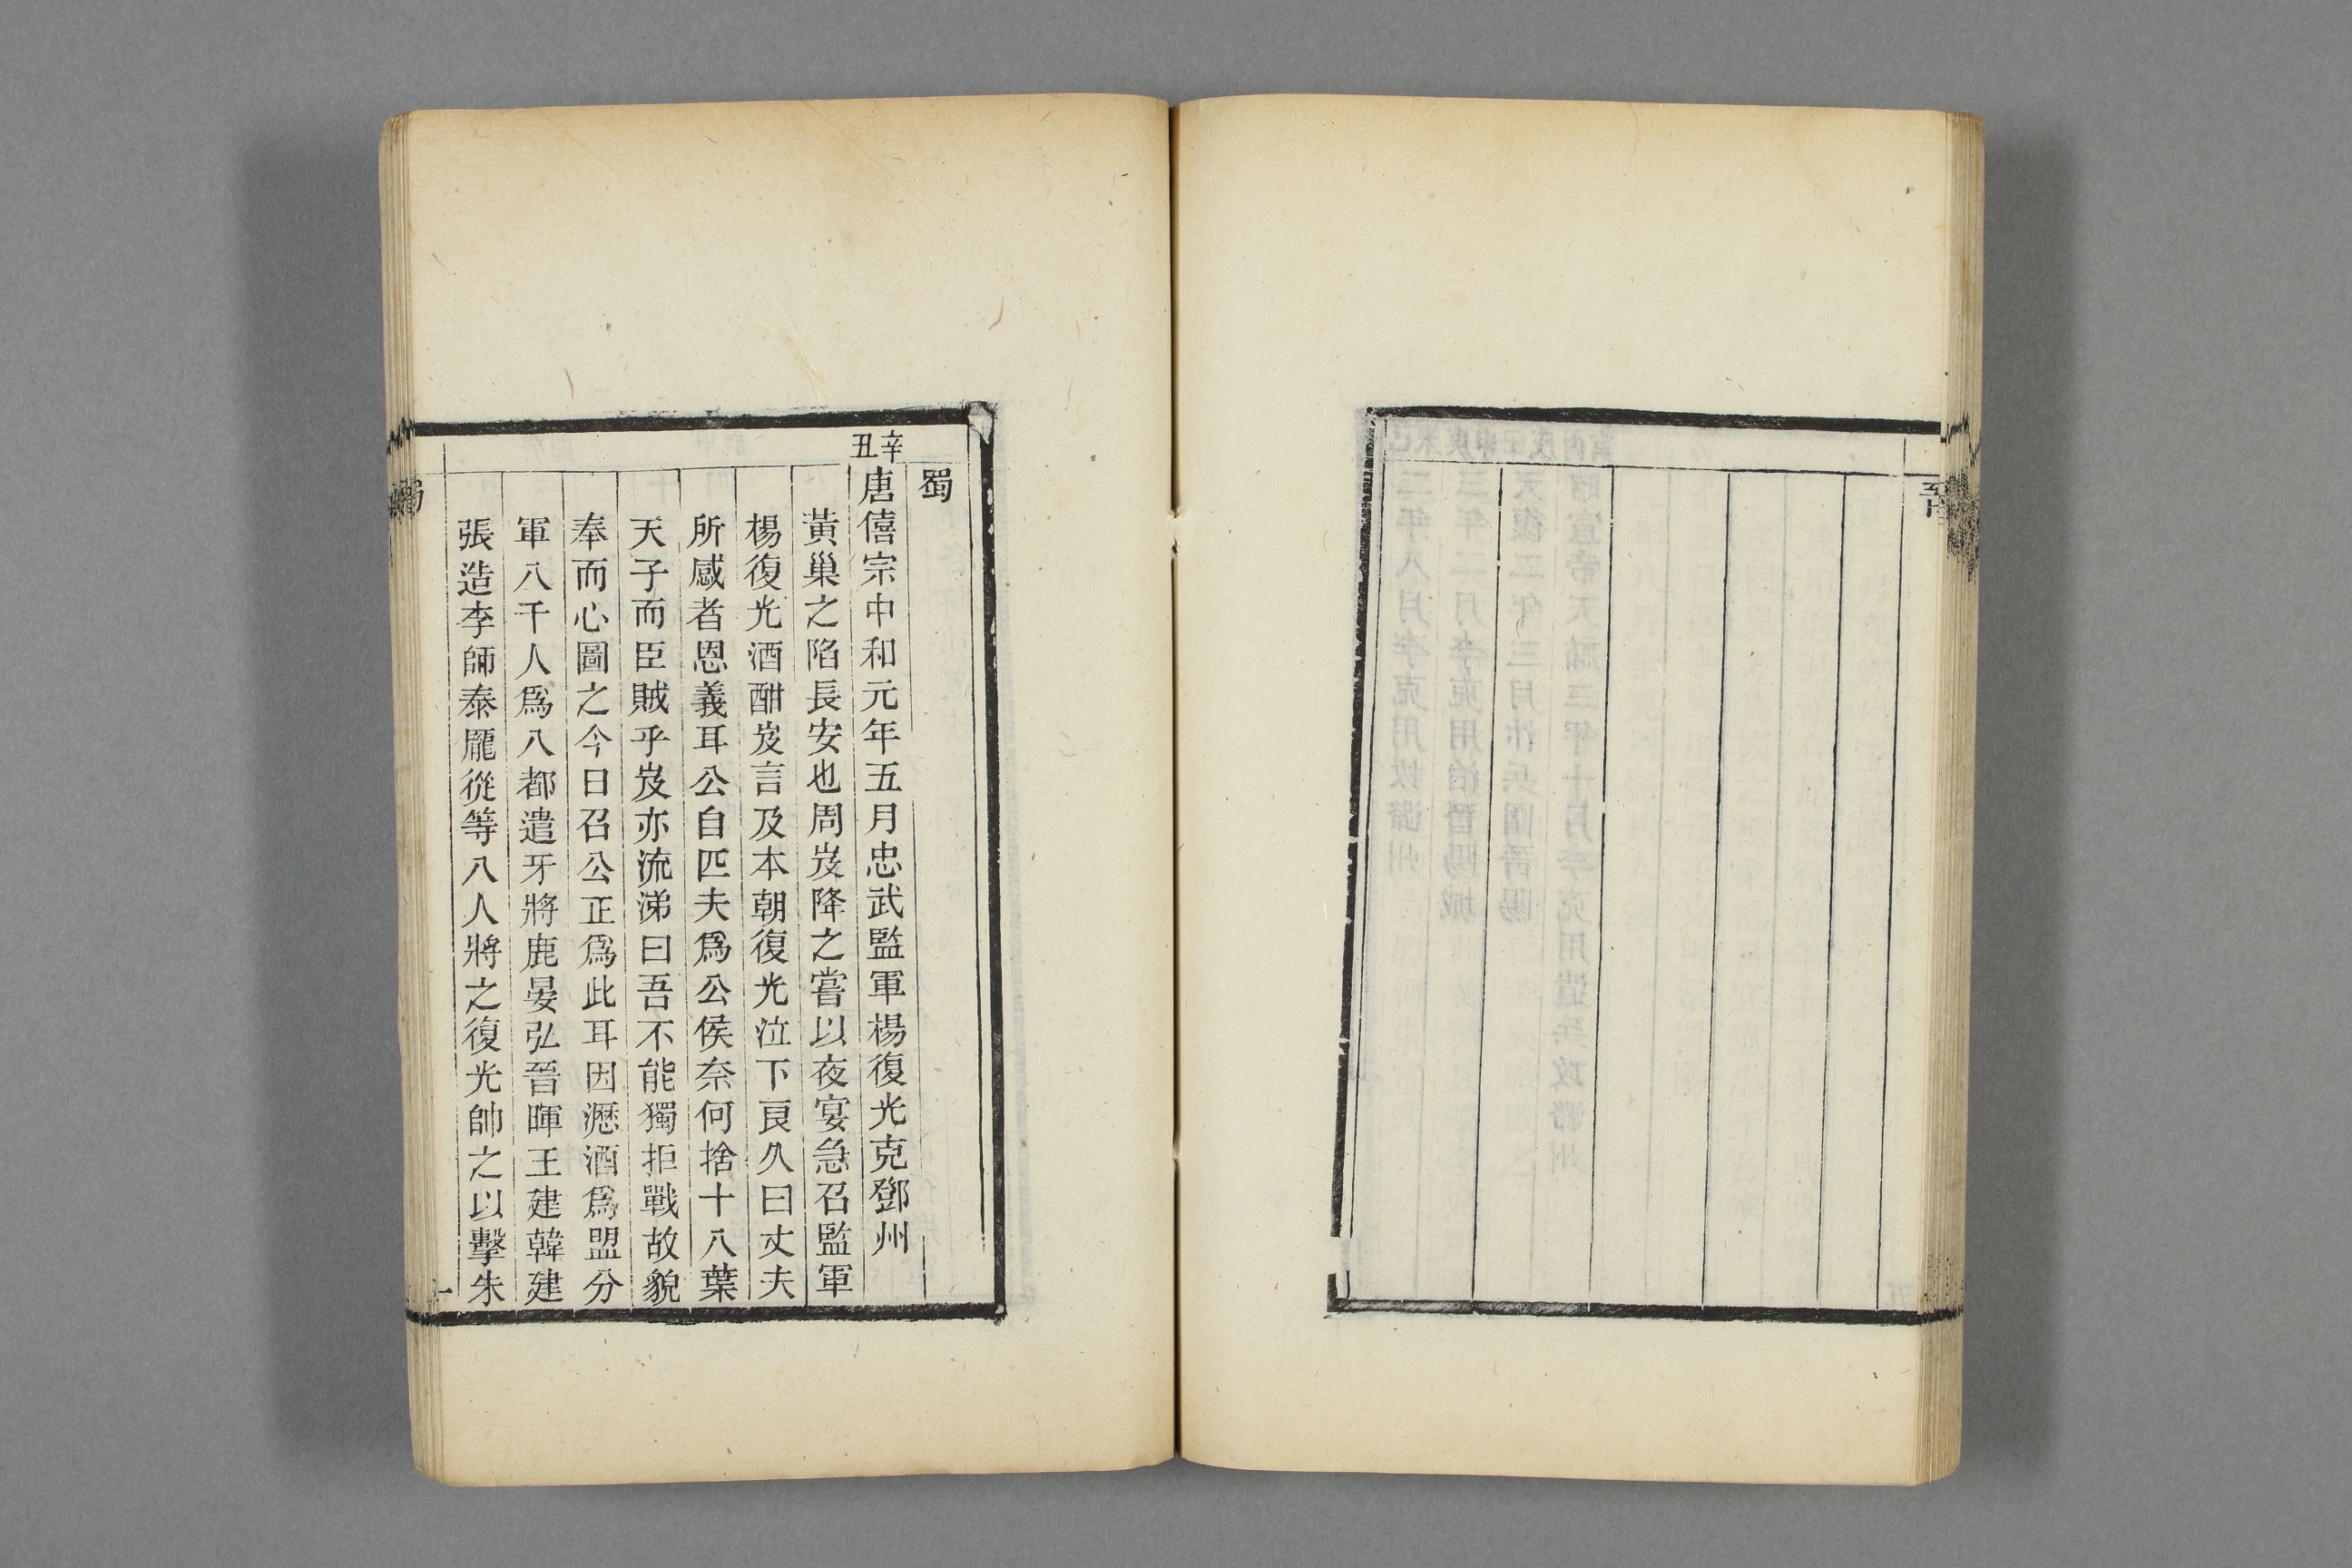 蜀
辛丑
唐僖宗中和元年五月忠武監軍楊復光克鄧州
黃巢之陷長安也周岌降之嘗以夜宴急召監軍
楊復光酒酣岌言及本朝復光泣下良久曰丈夫
所感者恩義耳公自匹夫爲公侯奈何捨十八葉
天子而臣賊乎岌亦流涕曰吾不能獨拒戰故貌
奉而心圖之今日召公正爲此耳因瀝酒爲盟分
軍八千人爲八都遣牙將鹿晏弘晉暉王建韓建
張造李師泰龐從等八人將之復光帥之以擊朱